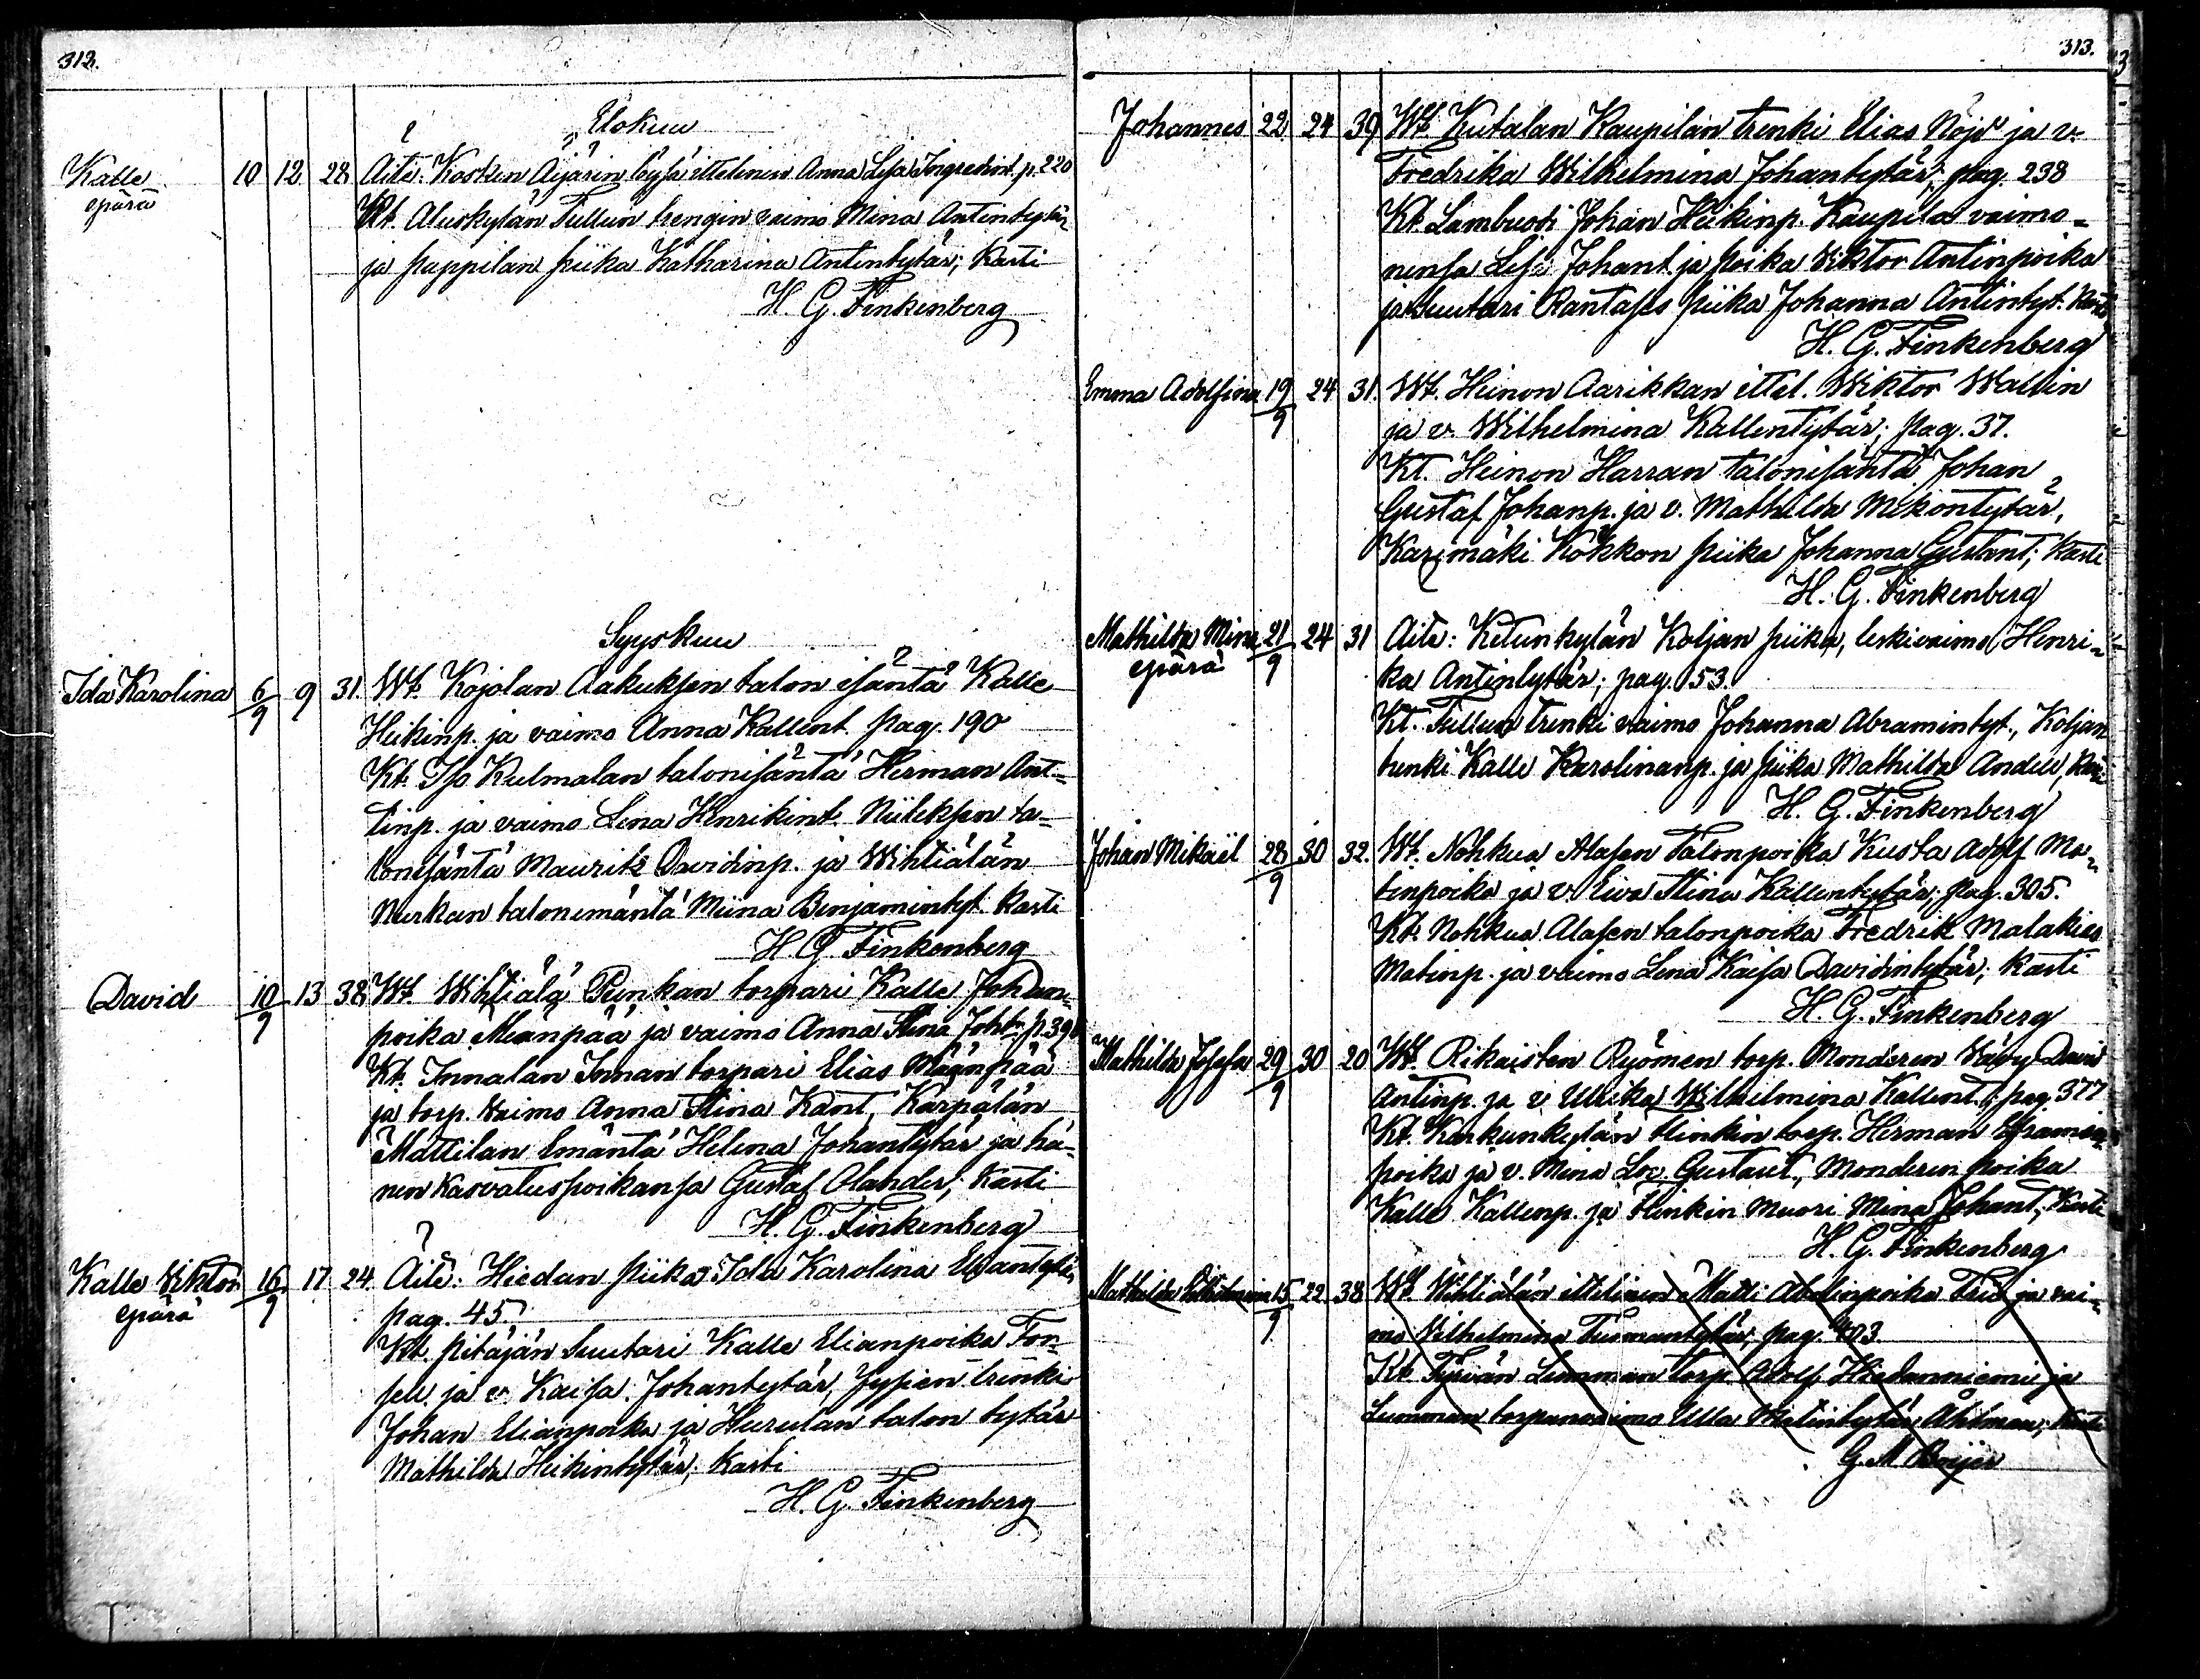 312.
Elokuu
Kalle 10 12 28 Äite: Kosken Äijärin löysä ittelinen Anna Lisa Ingredint. p. 220
epärä Kt. Aluskylän Tullun trengin vaimo Mina Antintytär
ja pappilan piika Katharina Antintytär; Kasti
H. G. Finkenberg
Syyskuu
Ida Karolina 6/9 9 31. Wt. Kojolan Aakuksen talon isäntä Kalle
Heikinp. ja vaimo Anna Kallent. pag. 190
Kt. Iso Kulmalan talonisäntä Herman Ant=
tinp. ja vaimo Lena Henrikint. Niileksen ta=
lonisäntä Maurits Davidinp. ja Wihtiälän
Nurkan talonemäntä Miina Benjamintyt. Kasti
H. G. Finkenberg
David 10/9 13 38 Wt. Wihtiälä Punkan torpari Kalle Johan=
poika Männpää ja vaimo Anna Stina Joht. p. 39
Kt. Innalan Innan torpari Elias Määnpää
ja torp. vaimo Anna Stina Kant, Karpälän
Mattilan Emäntä Helena Johantytär ja hä=
nen kasvatuspoikansa Gustaf Olander; Kasti
H. G. Finkenberg
Kalle Viktor 16/9 17 24. Äite: Hiedan piika Ida Karolina
epärä pag. 45.
Kt. pitäjän Suutari Kalle Elianpoika Fon=
sell ja v. Kaisa Johantytär, trenki
Johan Elianpoika ja Hurulan talon tytär
Mathilda Heikintytär; Kasti
H. G. Finkenberg
313.
Johannes 22 24 39 Wt. Kutalan Kaupilan trenki Elias Nöjd ja v.
Fredrika Wilhelmina Johantytär; pag. 238
Kt. Lambuoti Johan Heikinp. Kaupila vaimo=
nensa Lisa Johant. ja poika Viktor Antinpoika
ja Suutari Rantasen piika Johanna Antintyt. Kasti
H. G. Finkenberg
Emma Adolfina 19/9 24 31. Wt. Heinon Aarikkan ittel. Wiktor Wallin
ja v. Wilhelmina Kallentytär; pag. 37.
Kt. Heinon Harran talonisäntä Johan
Gustaf Johanp. ja v. Mathilda Mikontytär,
Karimäki Kokkon piika Johanna Gustant; Kasti
H. G. Finkenberg
Mathilda Mina 21/9 24 31 Äite: Ketunkylän Koljan piika, leskivaimo Henri=
epärä ka Antintytär; pag. 53.
Kt. Tullun trenki vaimo Johanna Abramintyt., Koljan
trenki Kalle Karolinanp. ja piika Mathilda Andell, Kasti
H. G. Finkenberg
Johan Mikael 28/9 30 32. Wt. Nohkua Alasen Talonpoika Kusta Adolf Ma=
tinpoika ja v. Eiva Stina Kallentytär; pag. 305.
Kt. Nohkua Alasen talonpoika Fredrik Malakias
Matinp. ja vaimo Lena Kaisa Davidintytär; Kasti
H. G. Finkenberg
Mathilda Josefa 29/9 30 20 Wt. Rikaisten Ryömen torp. Monderen Vävy David
Antinp. ja v. Ulrika Wilhelmina Kallent.; pag. 377
Kt. Karkunkylän Hinkin torp. Herman Efraimin
poika ja v. Mina Lov. Gustavt., Monderen poika
Kalle Kallenp. ja Hinkin Muori Mina Johant; Kasti
H. G. Finkenberg
Mathilda Wilhelmina 15/9 22 38 Wt. Wihtiälän ittelinen Matti Abelinpoika ja vai=
mo Wilhelmina Tuomantytär, pag. 403
Kt. Tyrvän Lumman torp. Adolf Hiedanniemi ja
Lumman torparivaimo Ulla Åhlman; Kasti
G. A. Boijer